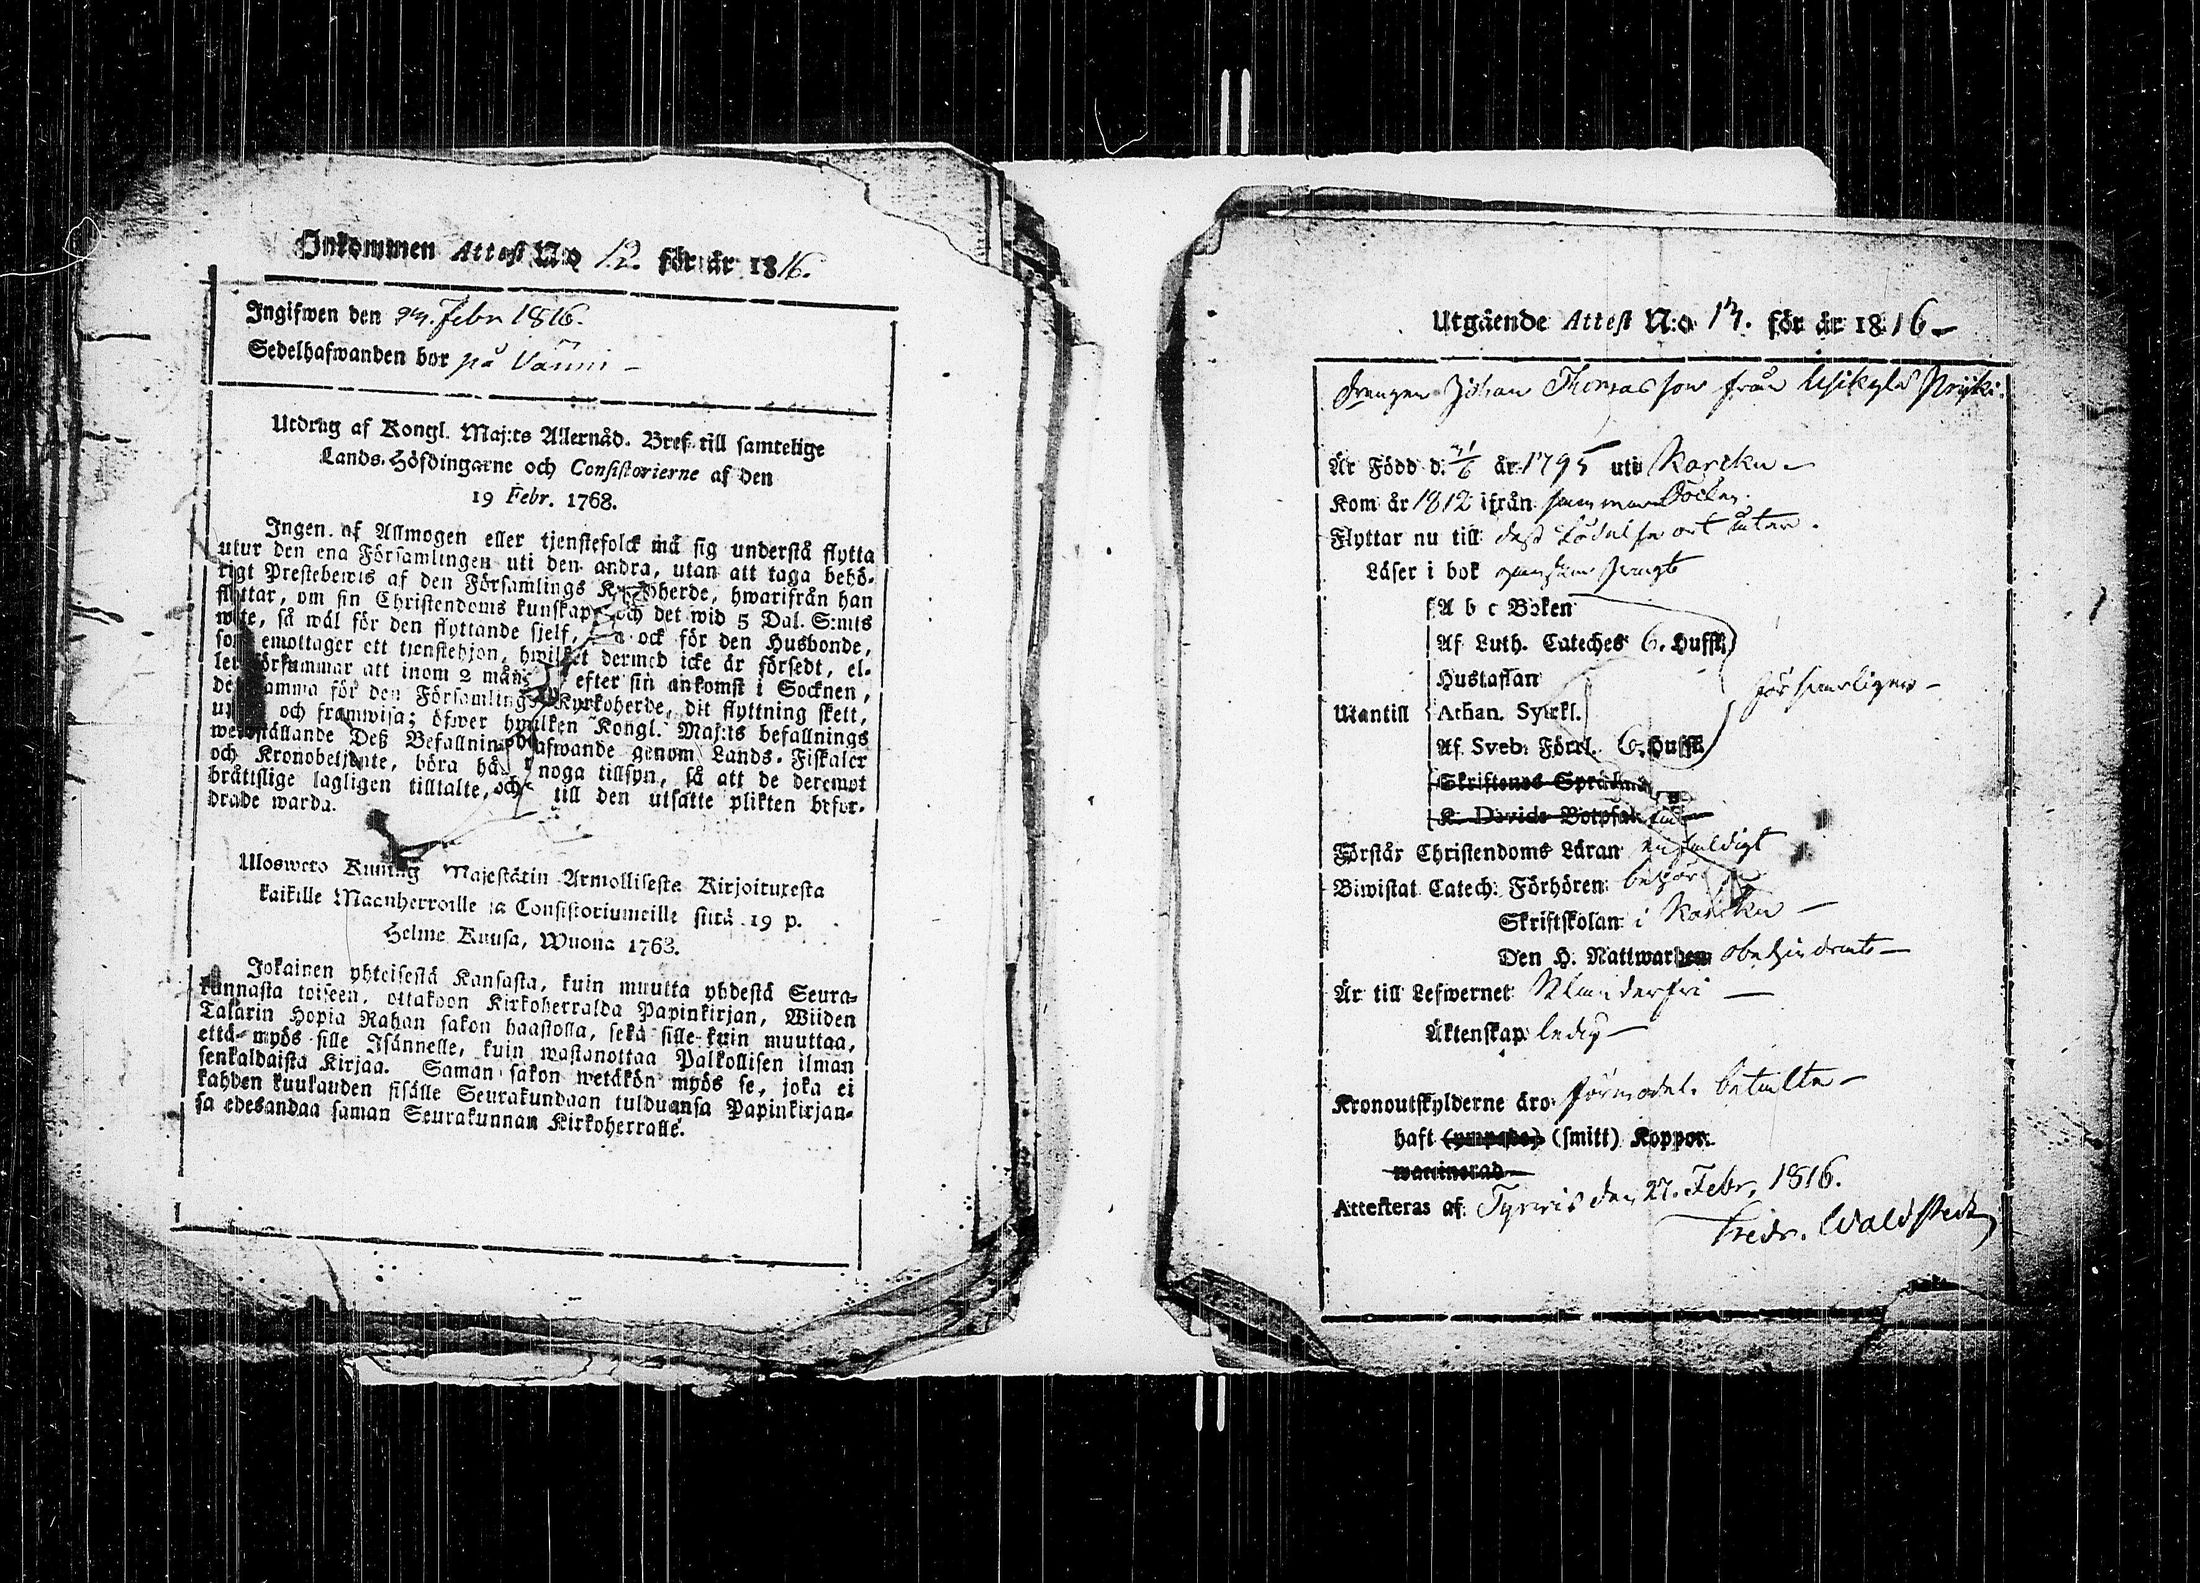 Inkommen Attest N:o 12. för år 1816.
Ingifwen den 27. Febr 1816.
Sedelhafwanden bor på Vänni –
Utdrag af Kongl. Maj:ts Allernåd. Bref till samtelige
Lands-Höfdingarne och Consistorierne af den
19 Febr. 1768.
Ingen af Allmogen eller tjenstefolck må sig understå flytta
utur den ena Församlingen uti den andra, utan att taga behö-
rigt Prestebewis af den Församlings Kyrkoherde, hwarifrån han
flyttar, om sin Christendoms kunskap, och det wid 5 Dal. S:mts
wite, så wäl för den flyttande sjelf, så ock för den Husbonde,
som emottager ett tjenstehjon, hwilket dermed icke är försedt, el-
ler försummar att inom 2 mån. efter sin ankomst i Socknen,
det samma för den Församlings Kyrkoherde, dit flyttning skett,
upte och framwisa; öfwer hwilken Kongl. Maj:ts befallnings
werkställande Deß Befallningshafwande genom Lands-Fiskaler
och Kronobetjente, böra hafwa noga tillsyn, så att de deremot
bråttslige lagligen tilltalte, och till den utsatte plikten befor-
drade warda.
Uloswето Kuning Majestätin Armollisesta Kirjoituxesta
kaikille Maanherroille ja Consistoriumeille siitä 19 p.
Helme Kuusa, Wuona 1763.
Jokainen yhteisestä Kansasta, kuin muutta yhdestä Seura-
kunnasta toiseen, ottakoon Kirkoherralda Papinkirjan, Wiiden
Talarin Hopia Rahan sakon haastolla, sekä sille kuin muuttaa,
että myös sille Isännelle, kuin wastanottaa Palkollisen ilman
senkaldaista Kirjaa. Saman sakon wetäkön myös se, joka ei
kahden kuukauden sisälle Seurakundaan tulduansa Papinkirjan-
sa edesandaa saman Seurakunnan Kirkoherralle.
Utgående Attest N:o 17. för år 1816 –
Drängen Johan Thomasson från Usikylä Prijki.
Är Född d. år 1795 uti Karcku –
Kom år 1812 ifrån samma Socken.
Flyttar nu till dess födelse ort åter.
Läser i bok
A b c Boken
Af Luth. Cateches 6. Huffst.
Hustaflan
Utantill Athan. Symb. försvarligen –
Af Sveb. Förkl. 6. Huffst.
Skriftenes Språkmed
K. Davids Botpsalmer
Förstår Christendoms Läran enfaldigt
Biwistat Catech. Förhören behör
Skriftskolan i Karcku –
Den H. Nattwarden obehindrat –
Är till Lefwernet Klanderfri –
Äktenskap ledig –
Kronoutskylderne äro förmodel. betalta –
haft (ympade) (smitt) Koppor.
waccinerad
Attesteras af Tyrwis den 27. Febr. 1816.
Fredr. Waldstedt